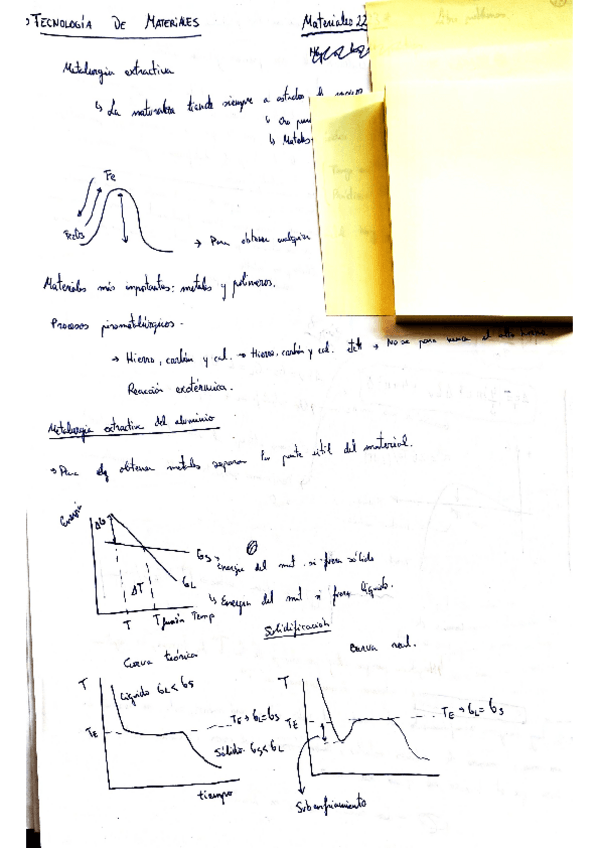 TECNOLOGÍA DE MATERIALES
Materiales 22
Metalurgia extractiva
↳ La naturaleza tiende siempre a estados de
↳
↳ Metales
Fe
→ Para obtener cualquier
Materiales más importantes: metales y polímeros.
Procesos pirometalúrgicos.
→ Hierro, carbón y cal. → Hierro, carbón y cal. → No se para nunca el alto horno
Reacción exotérmica.
Metalurgia extractiva del aluminio
→ Para obtener metales separan la parte útil del material.
Energía
ΔG
GS → Energía del mat. si fuera sólido
GL
↳ Energía del mat si fuera líquido.
ΔT
T T fusión Temp
Solidificación
Curva teórica
Curva real.
T
Líquido GL < GS
TE
TE → GL = GS
Sólido GS < GL
tiempo
T
TE
TE → GL = GS
Subenfriamiento